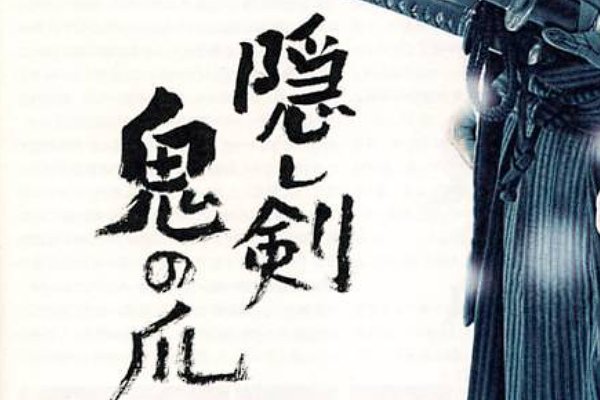 隠し剣
鬼の爪